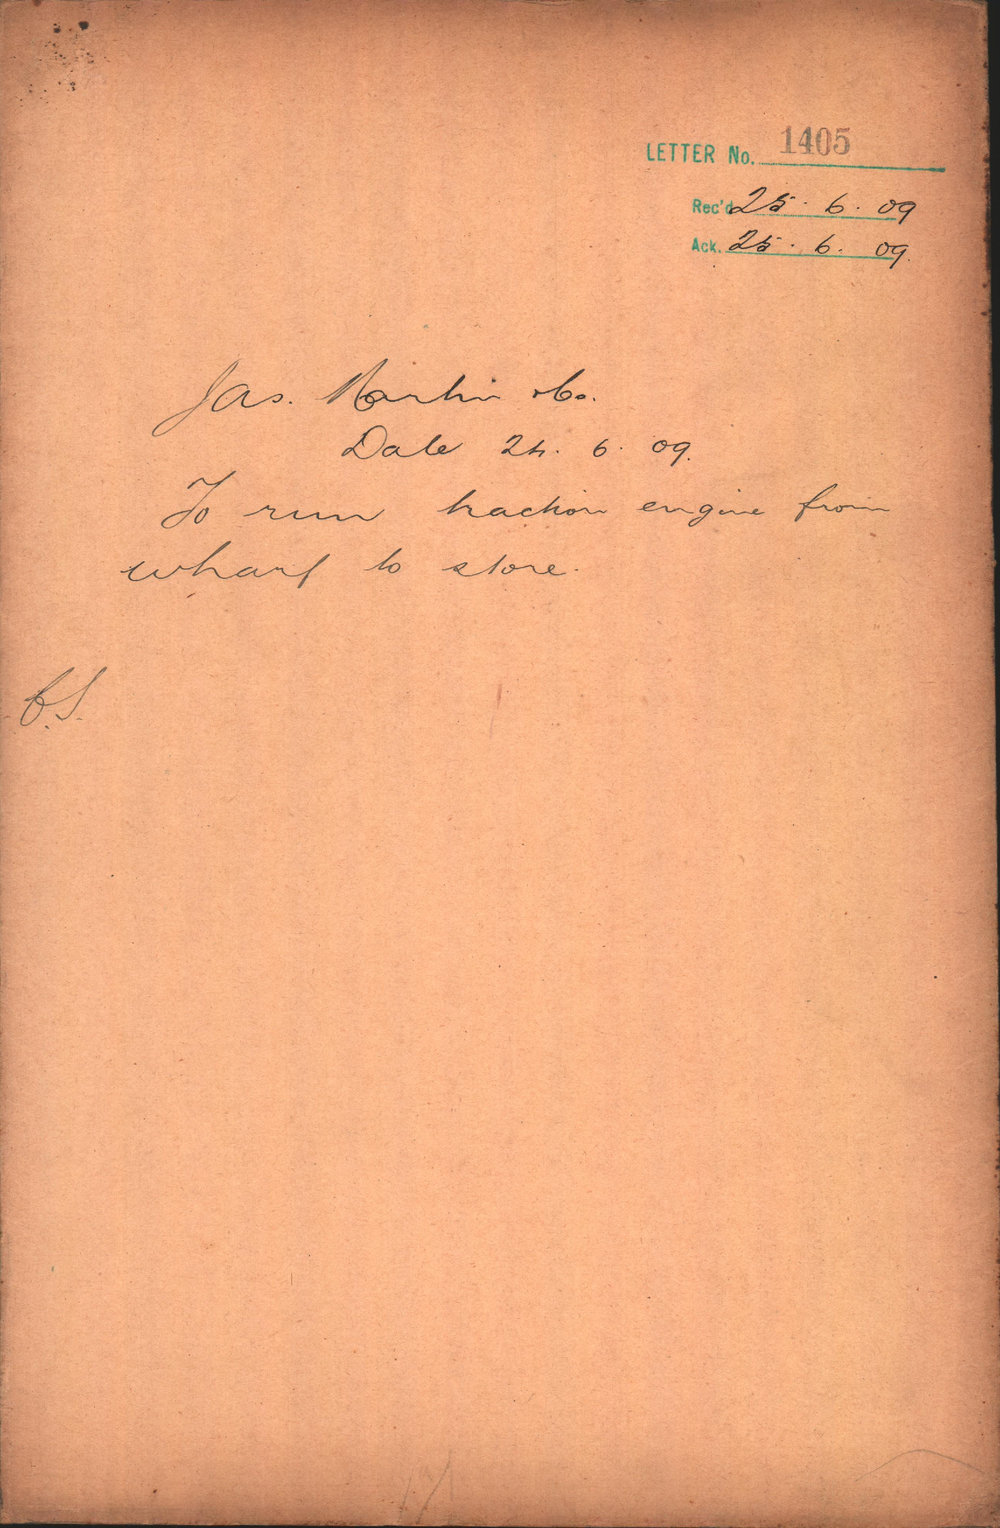 LETTER No. 1405
Rec'd 25. 6. 09
Ack. 25. 6. 09.
Jas. Martin & Co.
Date 24. 6. 09.
To run traction engine from
wharf to store.
C.S.